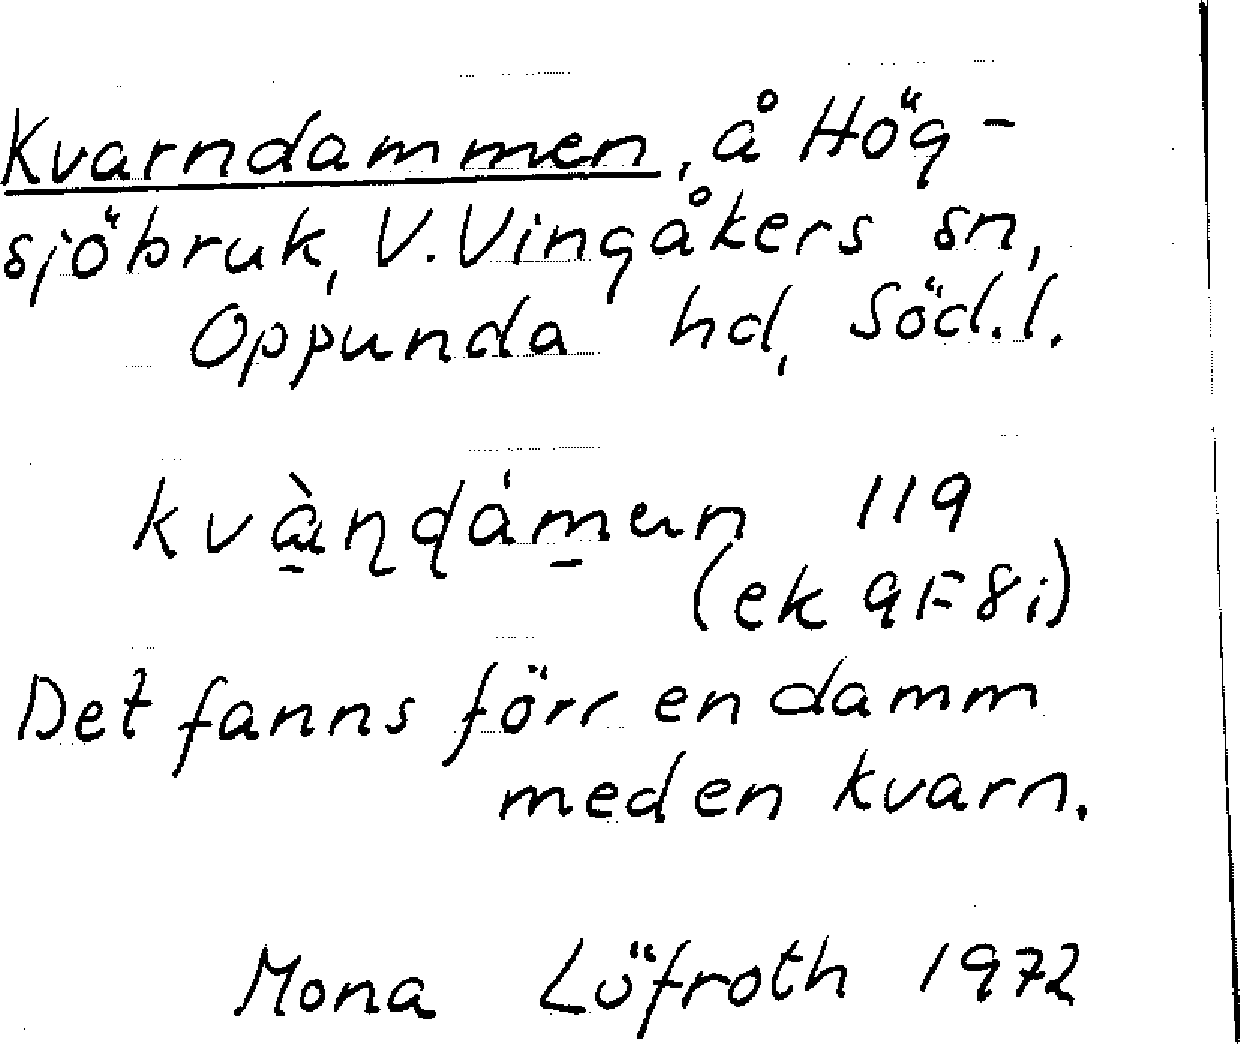 Kvarndammen, å Hög-
sjöbruk, V. Vingåkers sn,
Oppunda hd, Söd.l.
119
(ek 9F8i)
Det fanns förr en damm
med en kvarn.
Mona Löfroth 1972